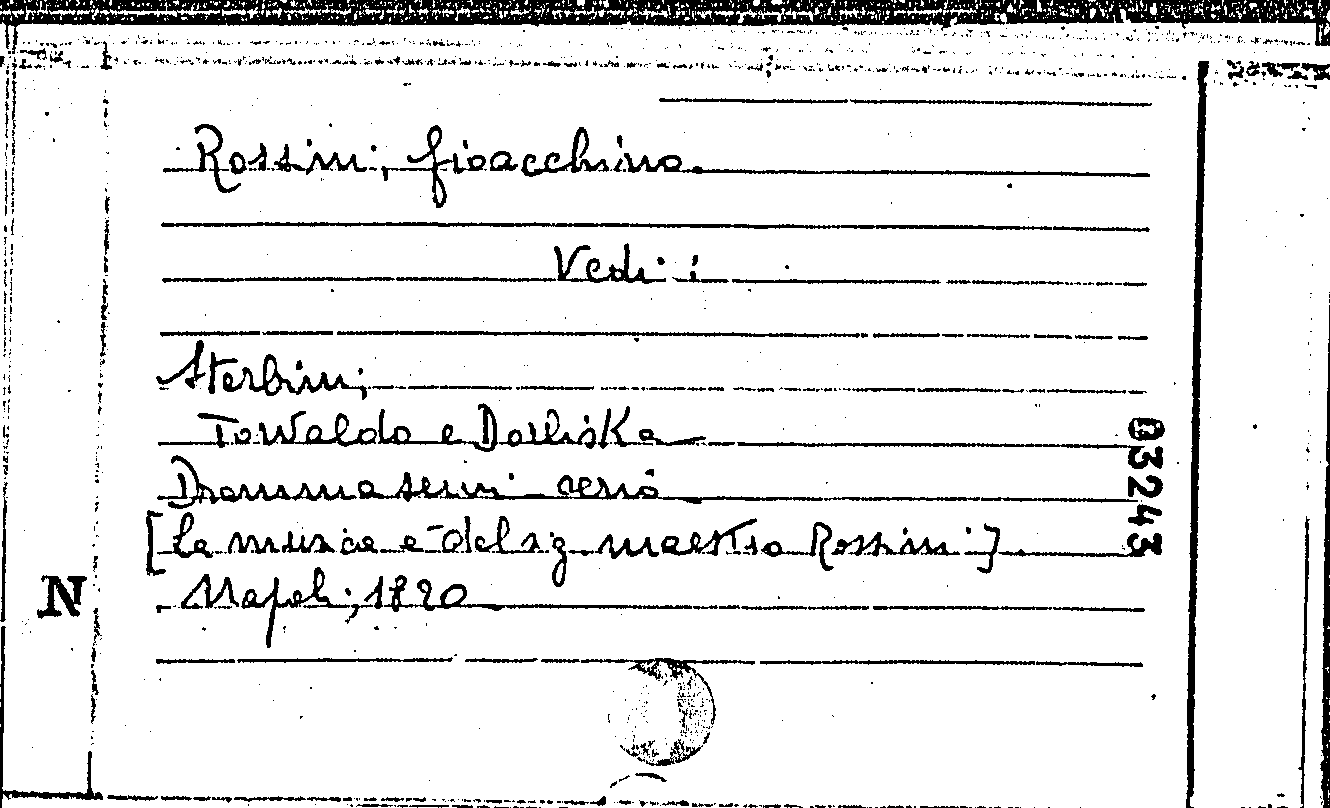 Rossini, Gioacchino.
Vedi:
Sterbini,
Torvaldo e Dorliska
Dramma semi-serio
[La musica è del sig. maestro Rossini].
Napoli, 1820
N
03243